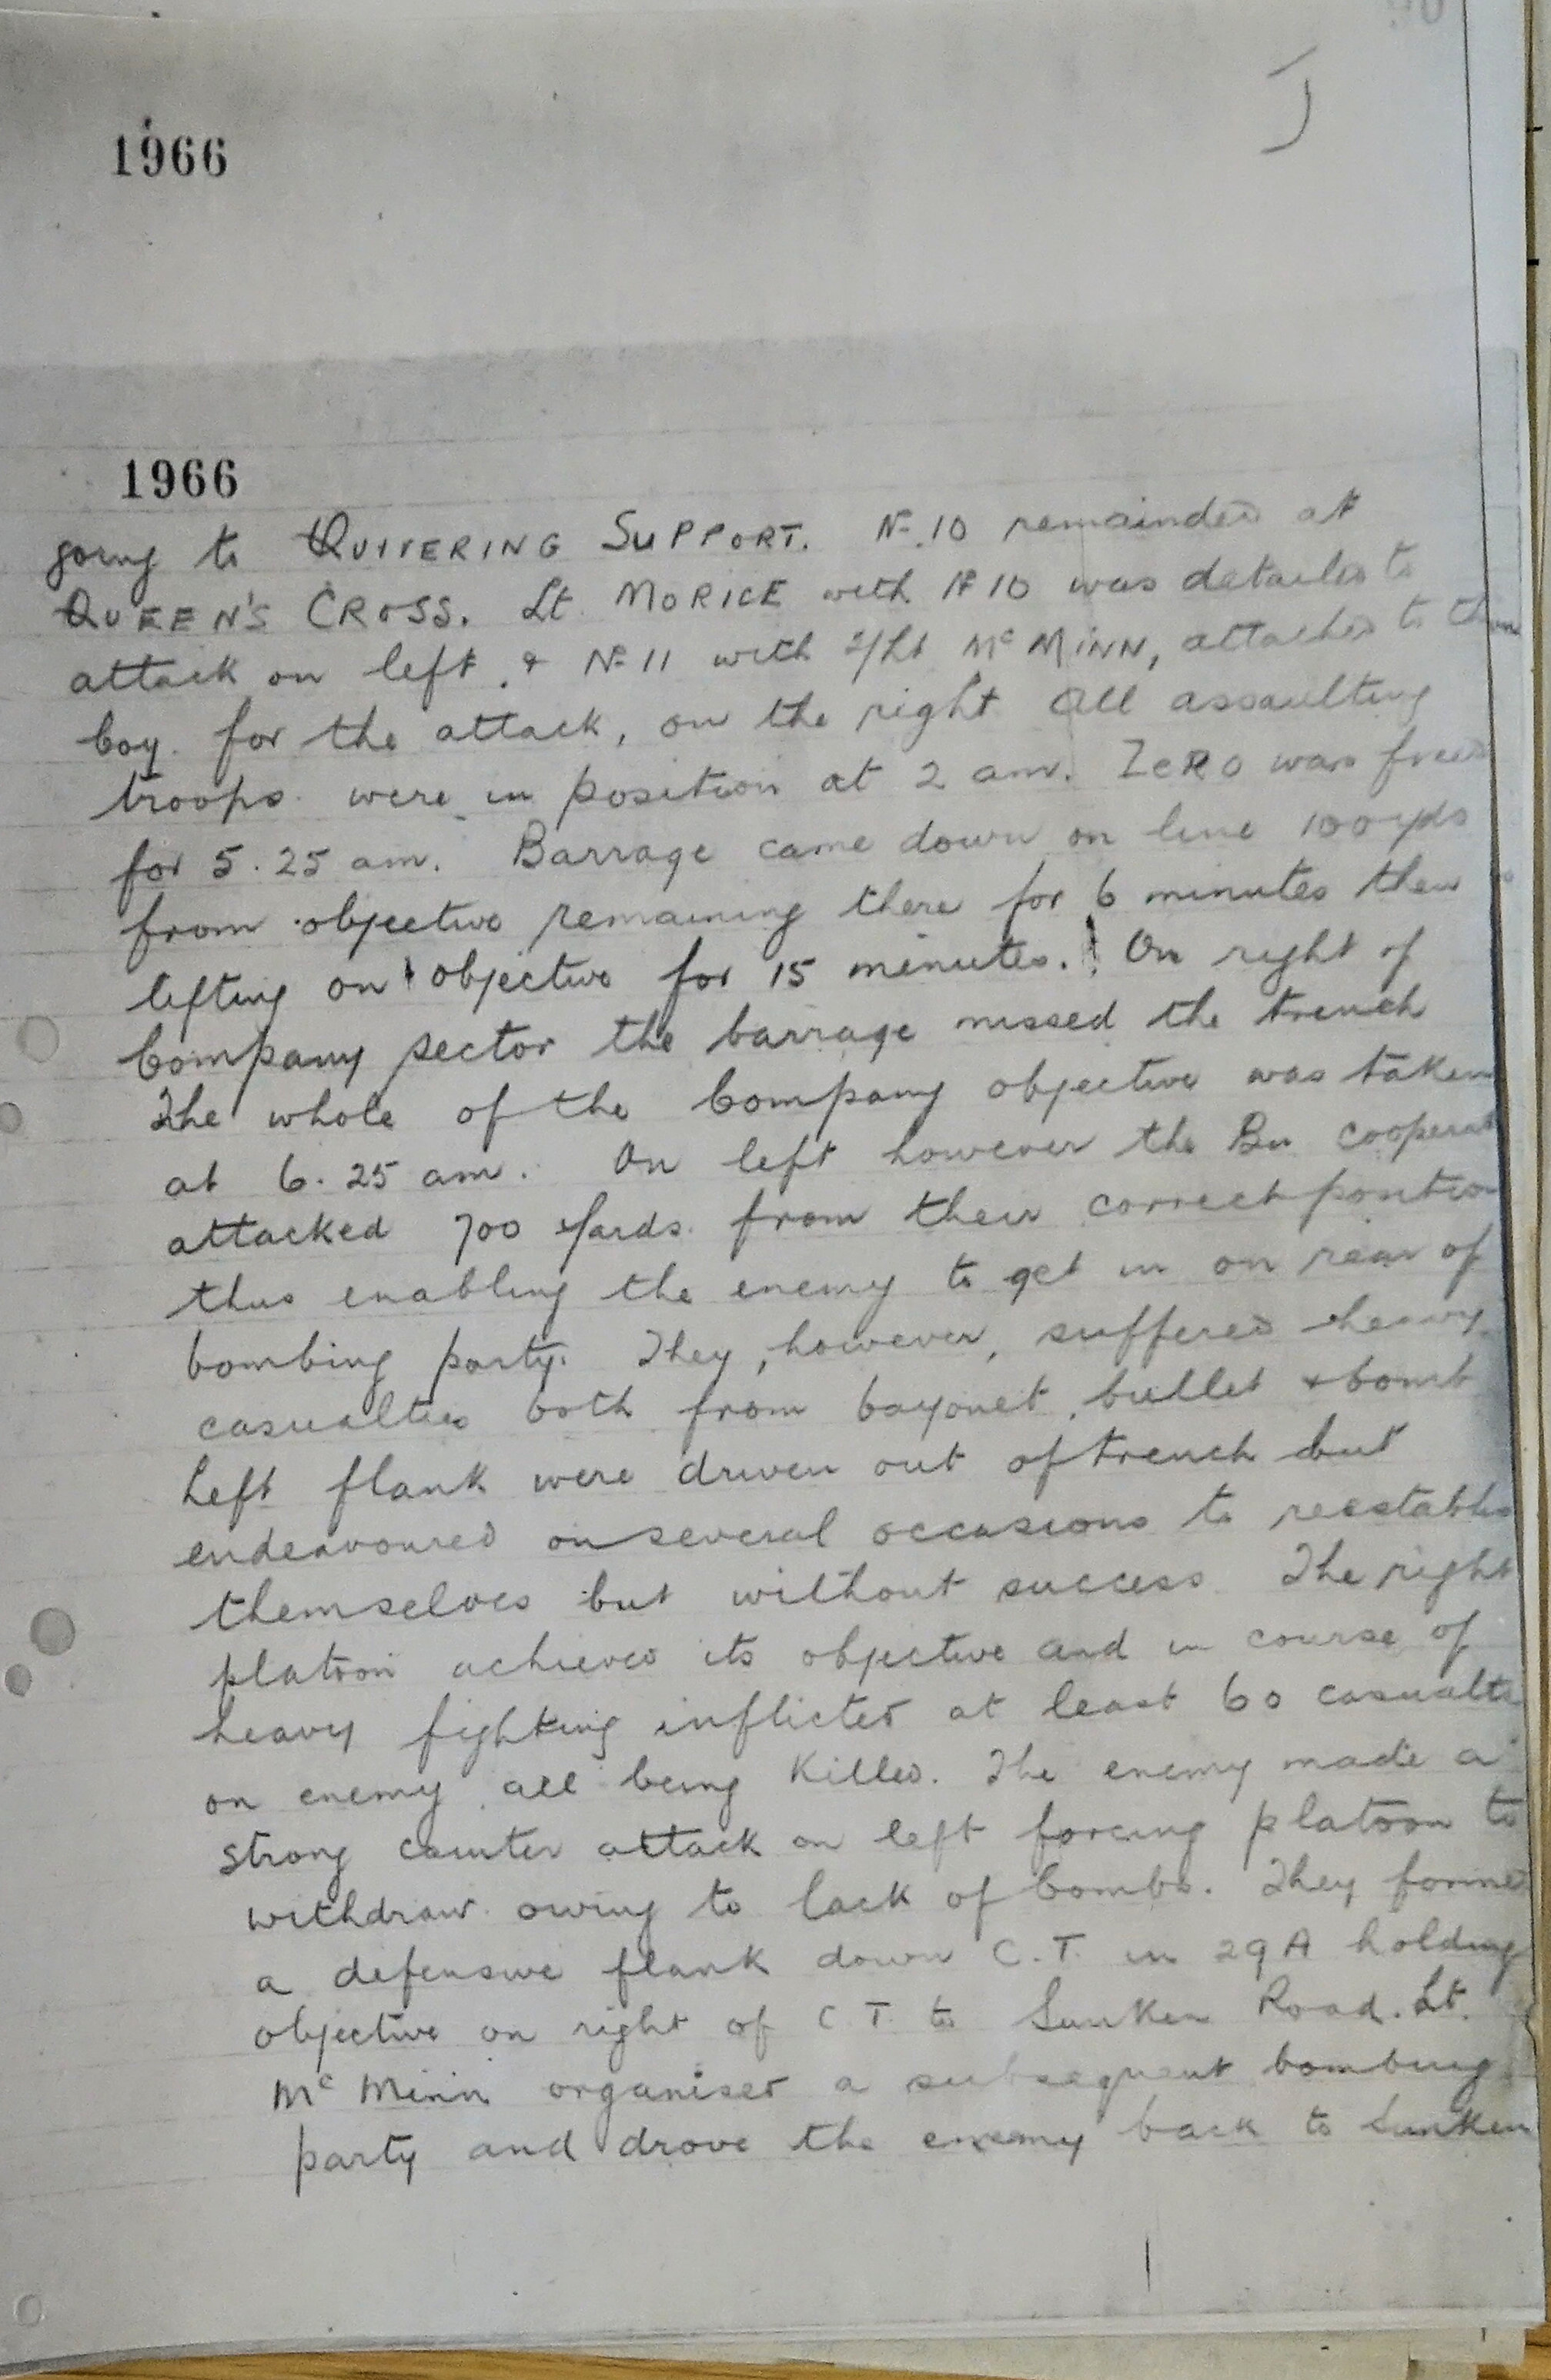 1966
1966
going to QUIVERING SUPPORT. No. 10 remainded at
QUEEN'S CROSS. Lt. MORICE with No 10 was detailed to
attack on left & No 11 with 2/Lt McMINN, attached to
Coy. for the attack, on the right All assaulting
troops were in position at 2 am. ZERO was
for 5.25 am. Barrage came down on line 100 yds
from objective remaining there for 6 minutes then
lifting on objective for 15 minutes. On right of
Company sector the barrage missed the trench
The whole of the Company objective was taken
at 6.25 am. On left however the Bn
attacked 700 yards from their correct position
thus enabling the enemy to get in on rear of
bombing party. They, however, suffered heavy
casualties both from bayonet, bullet & bomb
Left flank were driven out of trench but
endeavoured on several occasions to
themselves but without success The right
platoon achieved its objective and in course of
heavy fighting inflicted at least 60
on enemy all being killed. The enemy made a
strong counter attack on left forcing platoon to
withdraw owing to lack of bombs. They formed
a defensive flank down C.T. in 29A holding
objective on right of C.T. to Sunken Road. Lt.
McMinn organised a subsequent bombing
party and drove the enemy back to Sunken